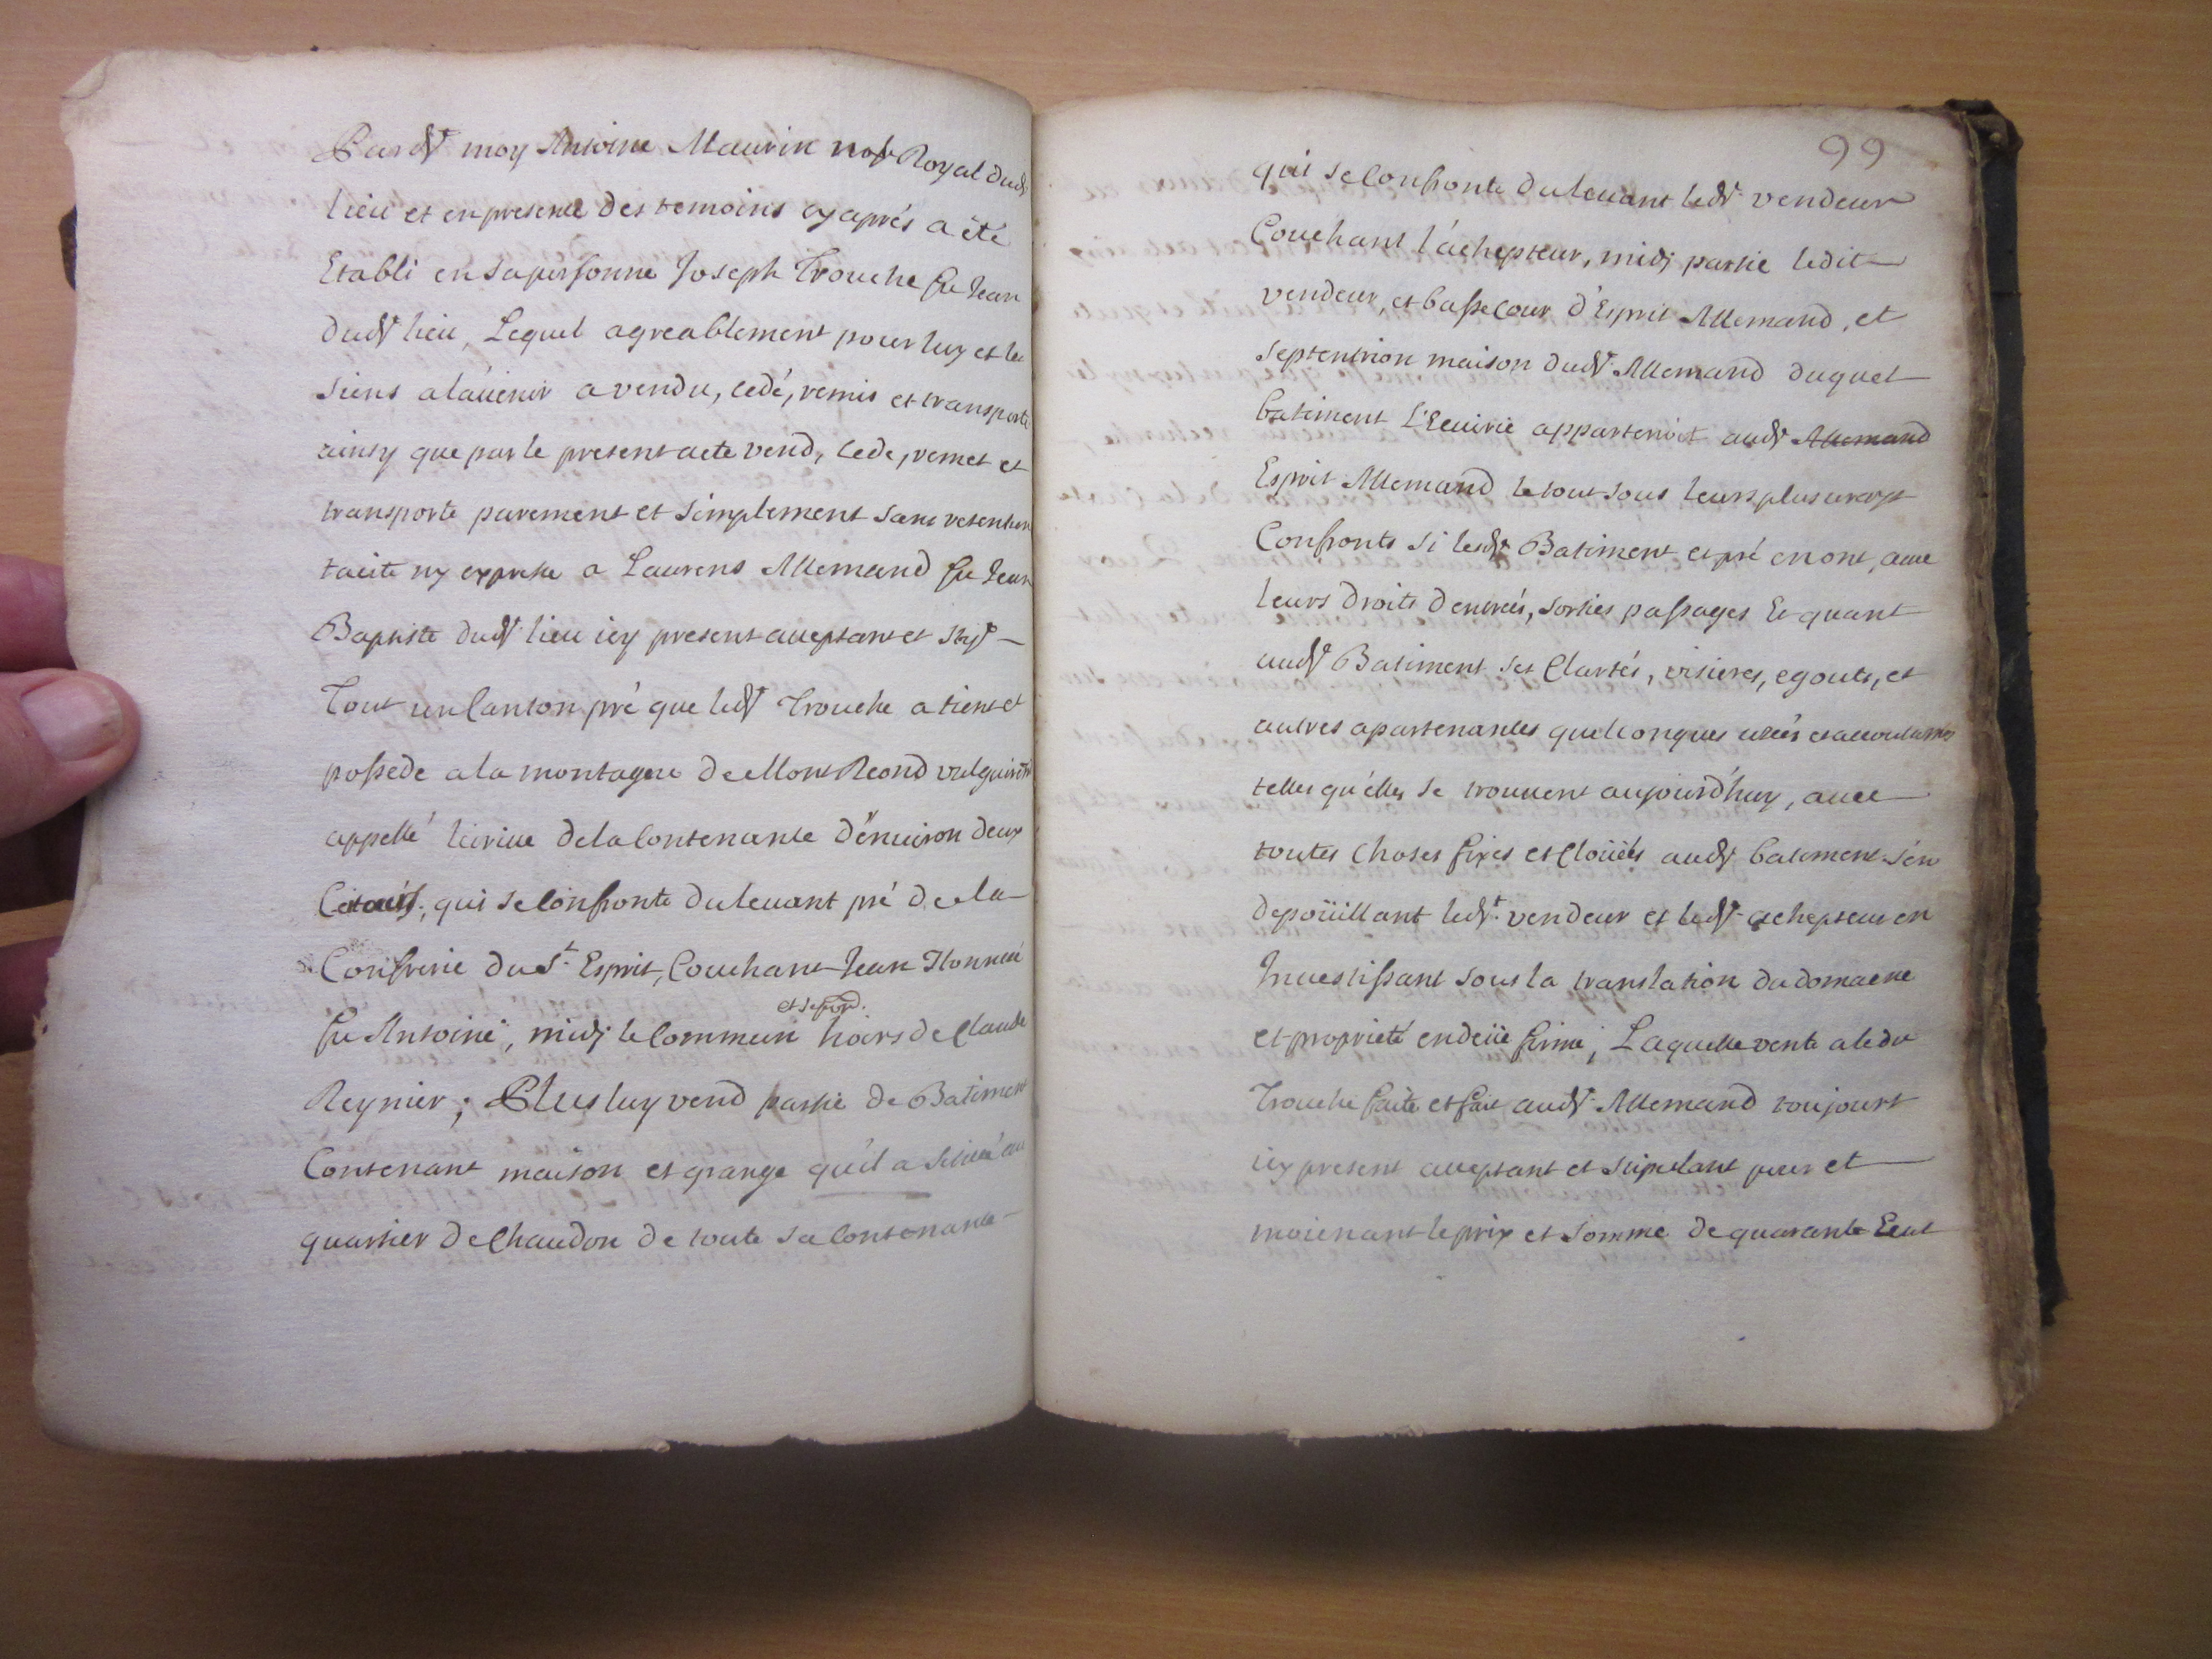 Pardt moy Antoine Maurin not Royal dudt
lieu et en presence des temoins cy aprés a été
Etabli en sa personne Joseph Trouche fu Jean
dudt lieu, Lequel agreablement pour luy et les
siens a l'avenir a vendu, cedé, remis et transporté
ainsy que par le present acte vend, cede, remet et
transporte purement et simplement sans retention
tacite ny expresse a Laurens Allemand fu Jean
Baptiste dudt lieu icy present acceptant et stipt
Tout un canton pré que ledt Trouche a tient et
possede a la montagne de Mont Reond vulguairemt
appellé de la contenance d'environ deux
qui se confronte du levant pré de la
Confrerie du St Esprit, Couchant Jean
fu Antoine, midj le commun et septon. hoirs de Claude
Reynier; Plus luy vend partie de Batiment
Contenant maison et grange qu'il a scitué au
quartier de Chaudon de toute sa contenance
99
qui se confronte du levant ledt vendeur
Couchant l'achepteur, midj partie ledit
vendeur, et basse cour d'Esprit Allemand, et
septentrion maison dudt Allemand duquel
batiment L'Ecuirie appartenoit audt Allemand
Esprit Allemand le tout sous leurs plus vrays
Confronts si lesdt Batiment et pré en ont, avec
leurs droits d'entrées, sorties passages Et quant
audt Batiment ses Clartés, visieres, egouts, et
autres apartenances quelconques usées et accoutumées
telles qu'elles se trouvent aujourd'huy, avec
toutes choses fixes et cloüées audt batiment s'en
depoüillant ledt vendeur et ledt achepteur en
Investissant sous la translation du domaene
et proprieté en deüe forme, Laquelle vente a ledt
Trouche faite et fait audt Allemand toujours
icy present acceptant et stipulant pour et
moienant le prix et somme de quarante Ecut